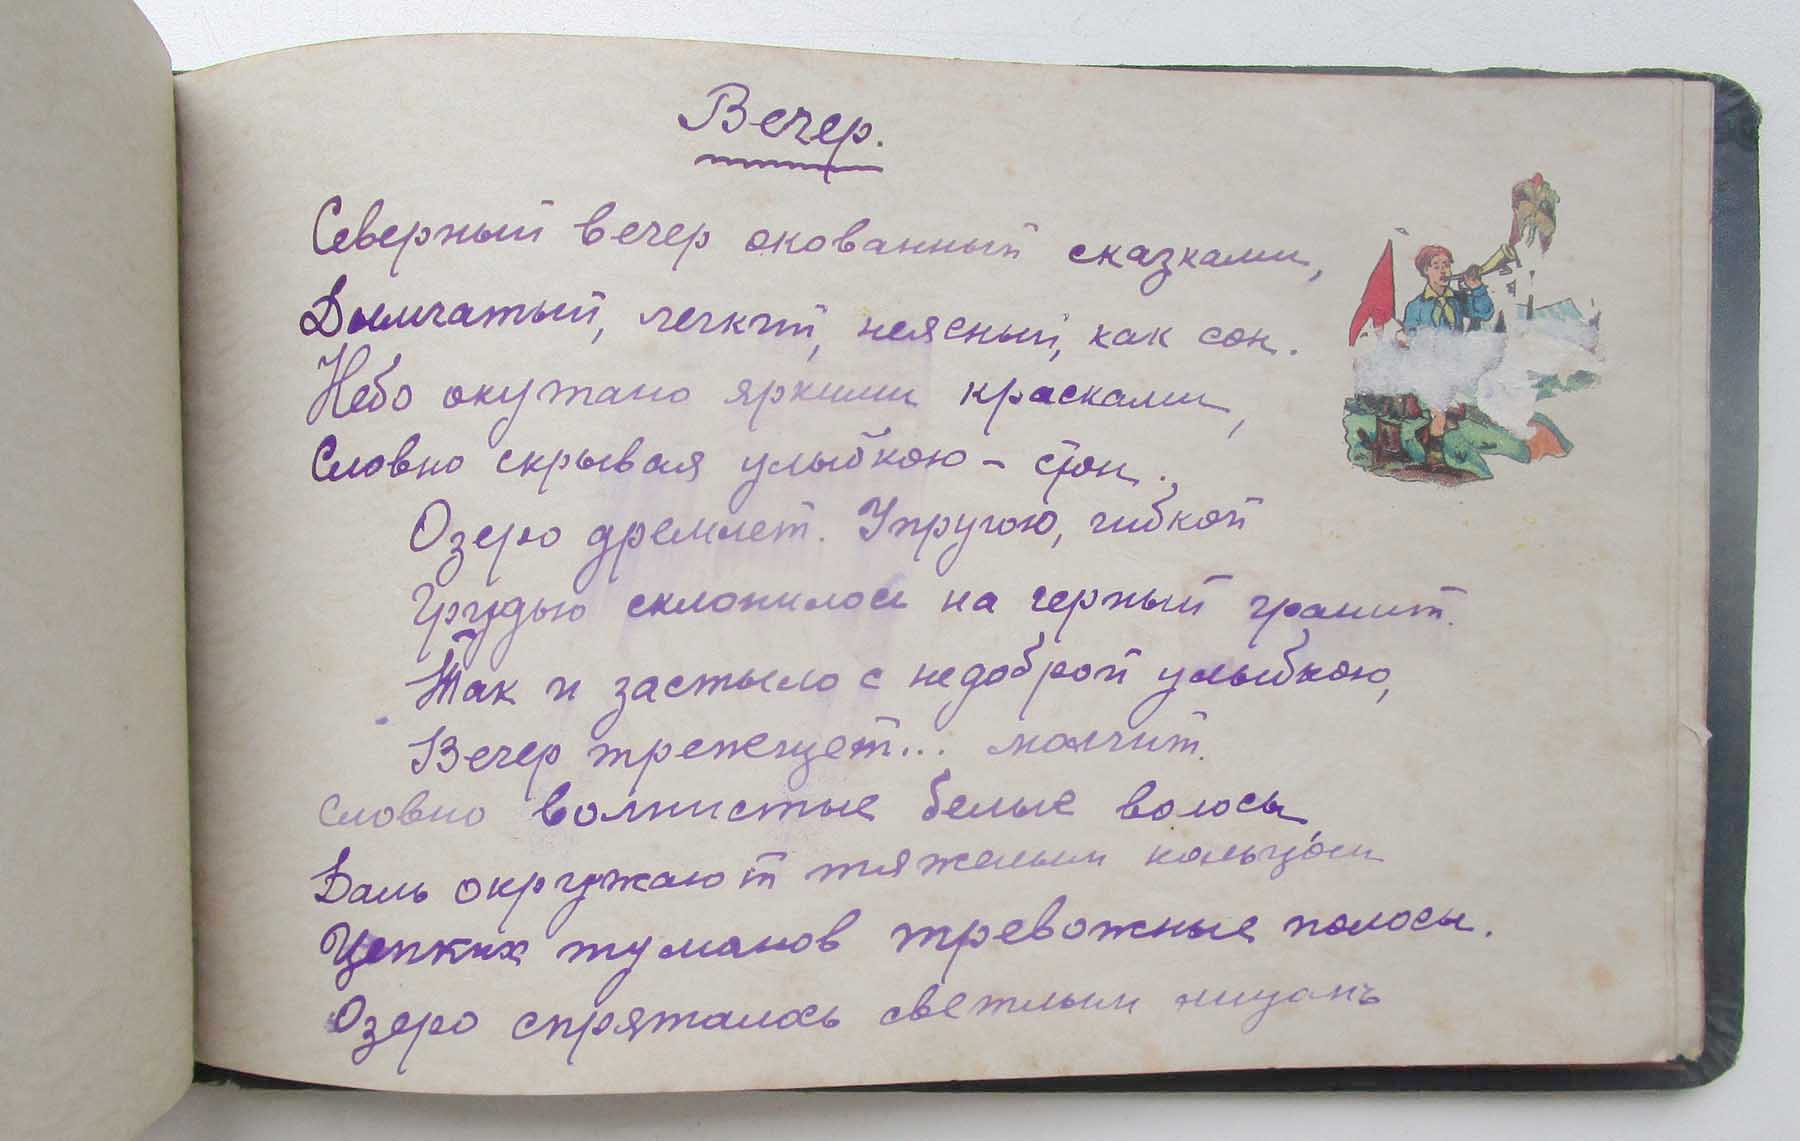 Вечер.
Северный вечер окованный сказками,
Дымчатый, легкий, неясный, как сон.
Небо окутано яркими красками,
Словно скрывая улыбкою – стон.
Озеро дремлет. Упругою, гибкой
Грудью склонилось на черный гранит.
Так и застыло с недоброй улыбкою,
Вечер трепещет... молчит.
Словно волнистые белые волосы
Даль окружают тяжелым кольцом
Цепких туманов тревожные полосы.
Озеро спряталось светлым лицом